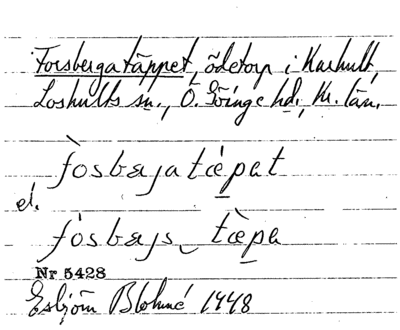 Forsbergatäppet, ödetorp i Karhult,
Loshults sn., Ö. Göinge hd., Kr. län.
fòsbæjatæ̀pat
el.
fòsbæjs‿tæ̀pa
Nr 5428
Esbjörn Blohmé 1948